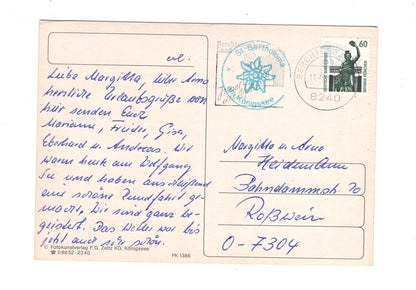 erl.
Liebe Margitta, lieber Arno
herzliche Urlaubsgrüße von
hier senden Euch
Mariann, Frieder, Gisa,
Eberhard u. Andreas. Wir
waren heute am Wolfgang
See und haben anschließend
eine schöne Rundfahrt ge-
macht. Wir sind ganz be-
geistert. Das Wetter war bis
jetzt auch sehr schön.
© Fotokunstverlag F. G. Zeitz KG, Königssee
☎ 08652-2340
PK 1386
St. Bartholomä
am Königssee
8240
60
Margitta u. Arno
Heidemann
Bahndammstr. 20
Roßwein
O-7304